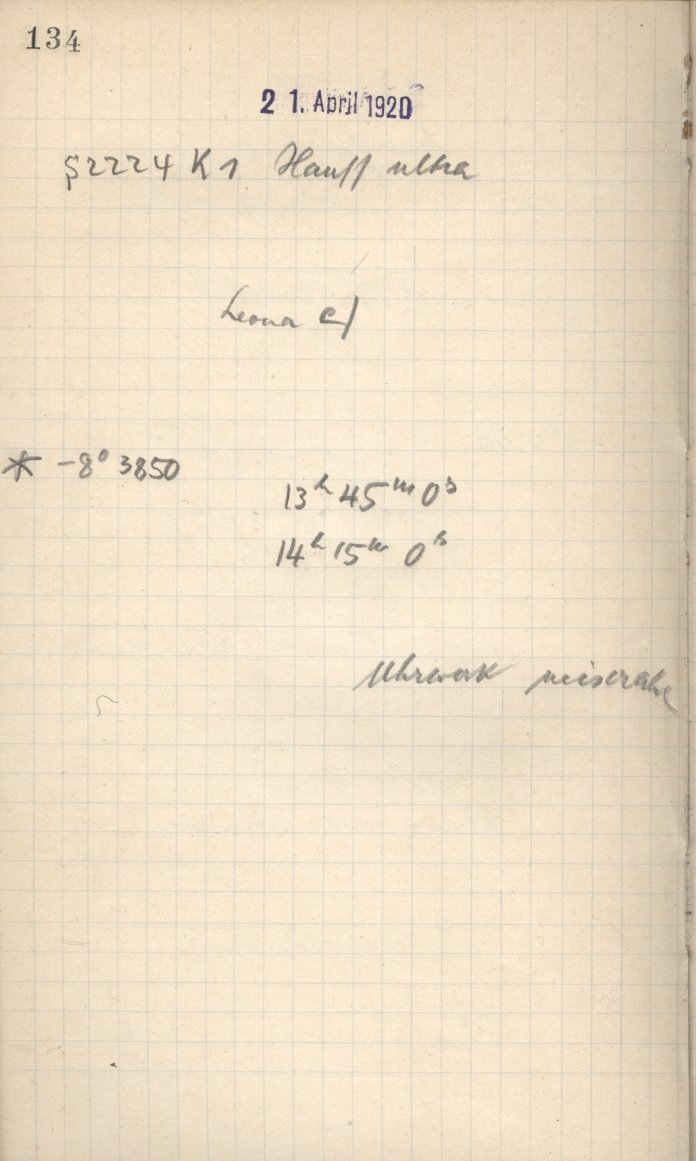 134
21. April 1920
S2224 K1 Hauff ultra
Leona
* -8° 3850
13ʰ 45ᵐ 0ˢ
14ʰ 15ᵐ 0ˢ
Uhrwerk miserabel